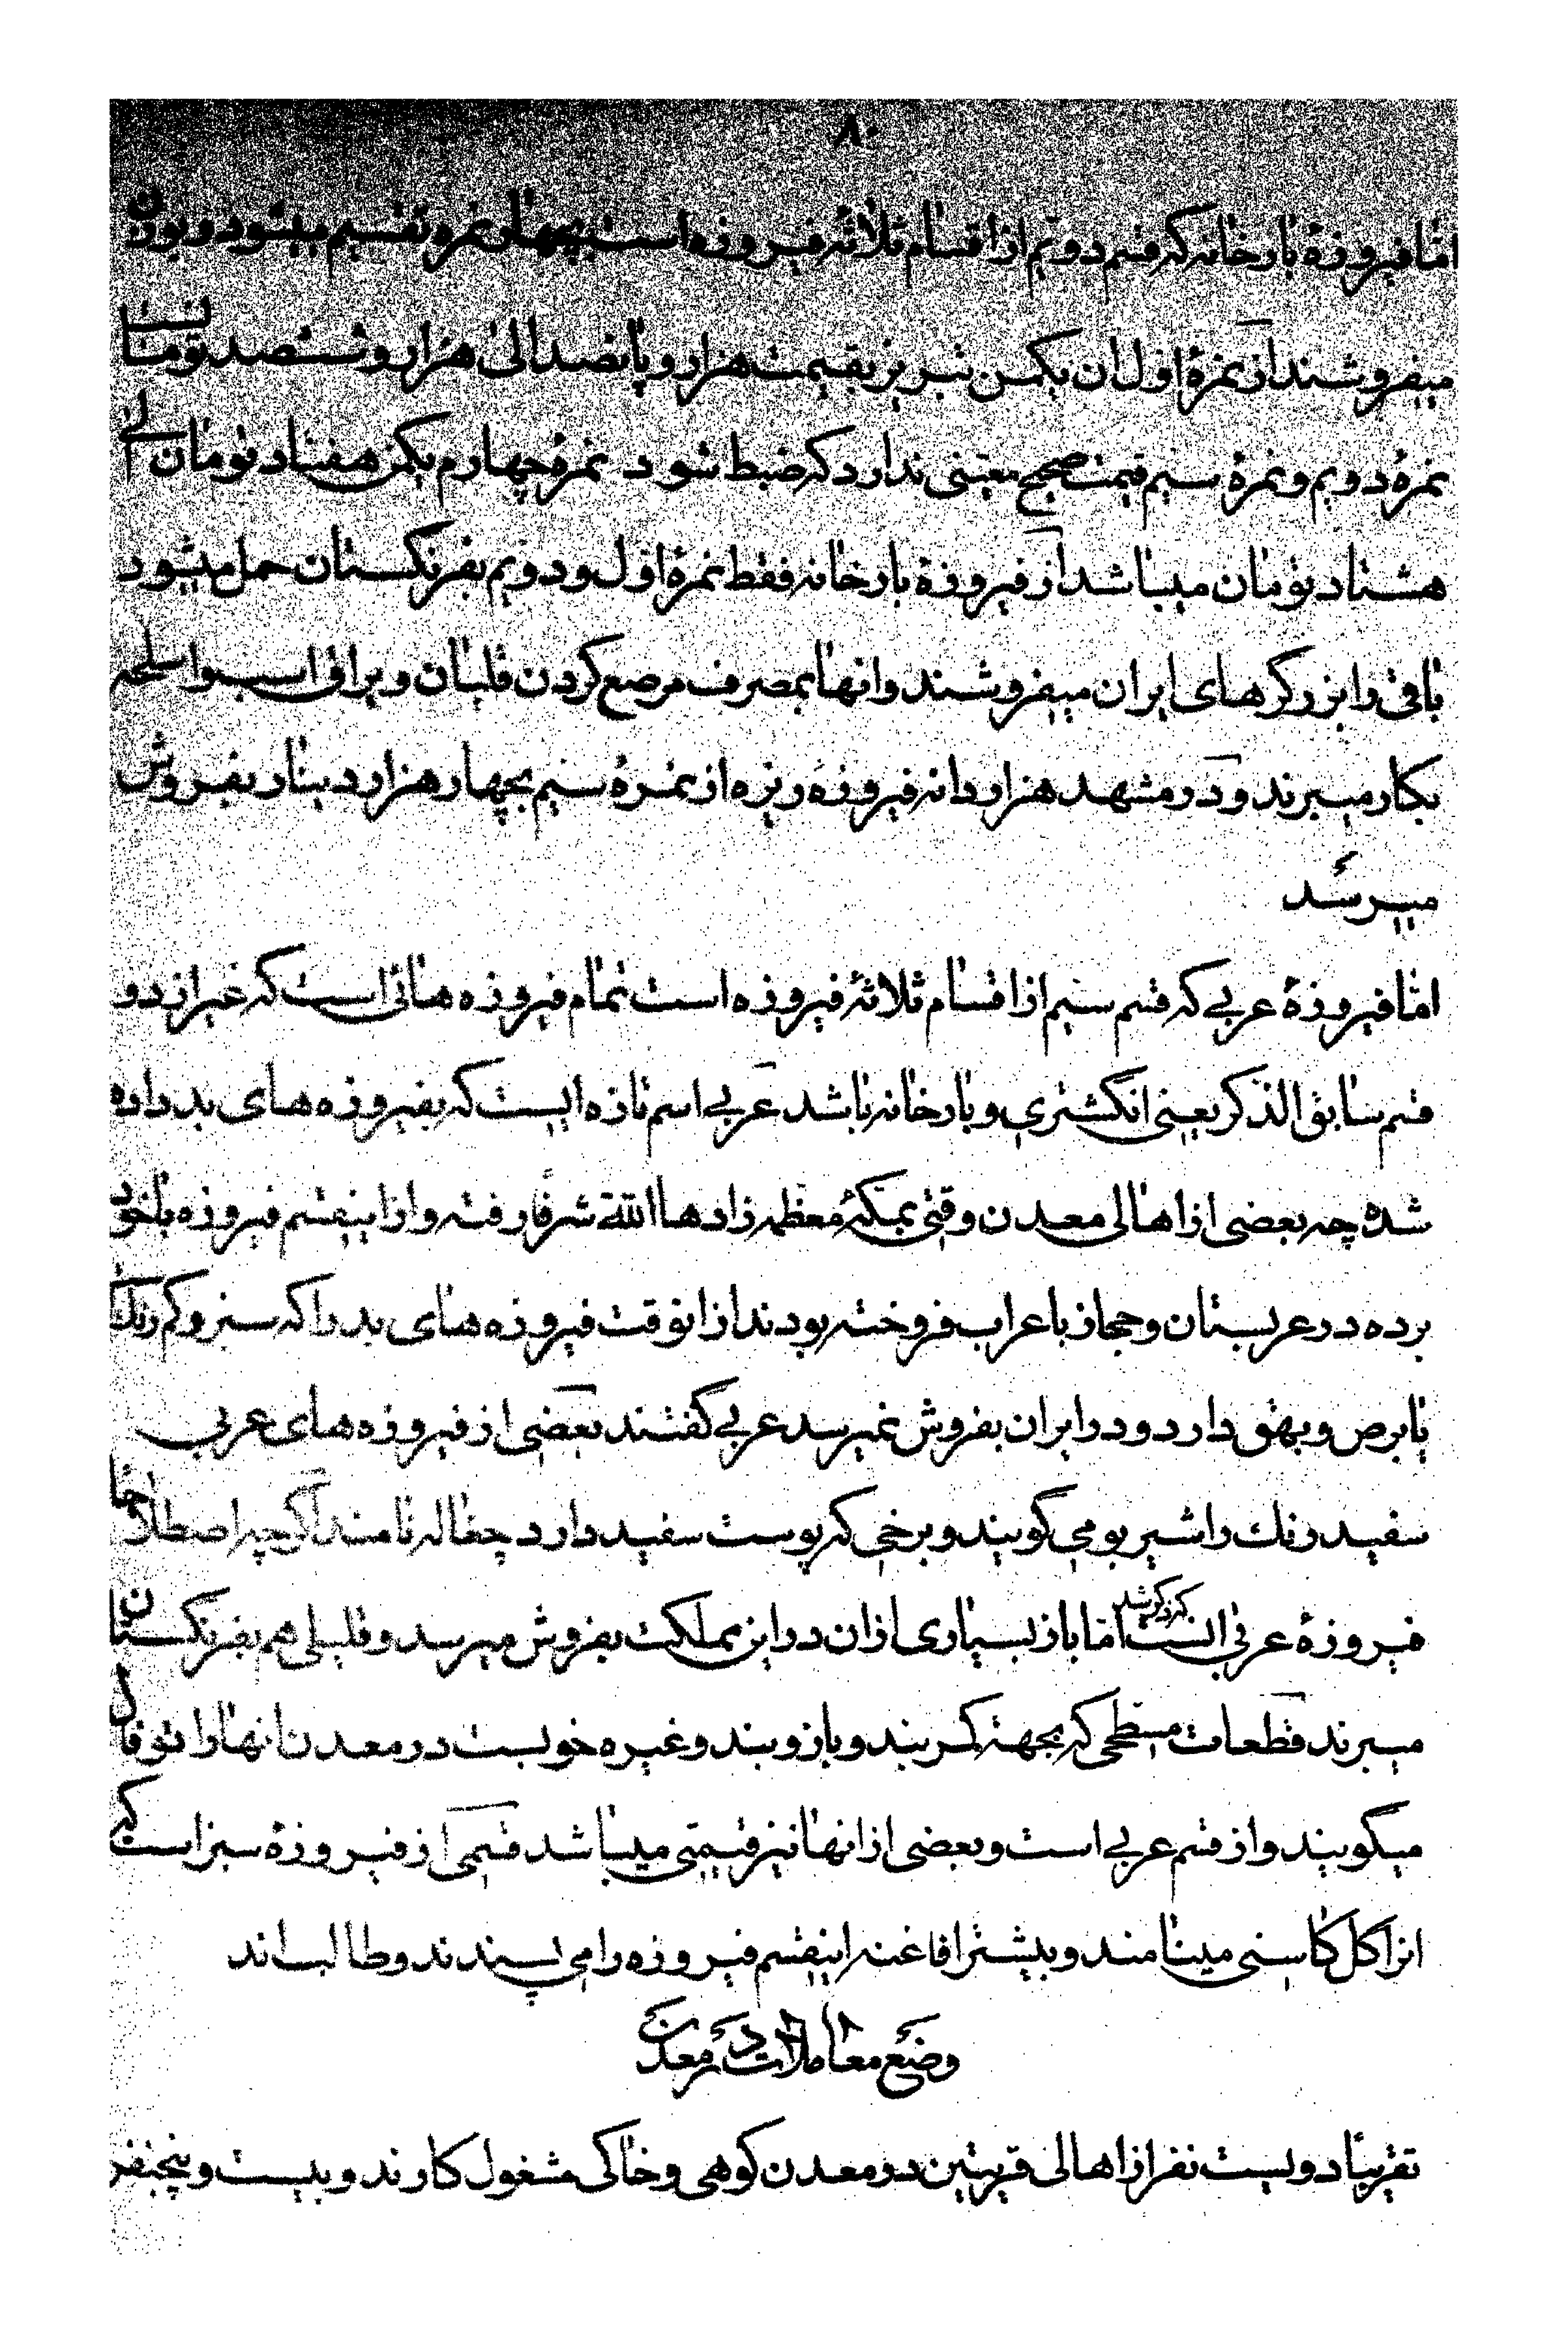 ٨٠
امّا فیروزهٔ بارخانه که قسم دویّم از اقسام ثلاثهٔ فیروزه است بچهار نمره تقسیم میشود و بوزن
میفروشند از نمرهٔ اوّل ان یکمن تبریز بقیمت هزار و پانصد الی هزار و ششصد تومانست
نمرهٔ دویّم و نمرهٔ سیّم قیمت صحیح معیّنی ندارد که ضبط شود نمرهٔ چهارم یکمن هفتاد تومان الی
هشتاد تومان میباشد از فیروزهٔ بارخانه فقط نمرهٔ اوّل و دویّم بفرنگستان حمل میشود
باقی را بزرگرهای ایران میفروشند و انها بمصرف مرصع کردن قلیان و یراق اسب و اسلحه
بکار میبرند و در مشهد هزار دانه فیروزهٔ ریزه از نمرهٔ سیّم بچهار هزار دینار بفروش
میرسد
امّا فیروزهٔ عربی که قسم سیّم از اقسام ثلاثهٔ فیروزه است تمام فیروزه هائی است که غیر از دو
قسم سابق الذکر یعنی انگشتری و بارخانه باشد عربی اسم تازه ایست که بفیروزه های بد داده
شده چه بعضی از اهالی معدن وقتی بمکهٔ معظمه زادها الله شرفاً رفته و از اینقسم فیروزه با خود
برده در عربستان و حجاز باعراب فروخته بودند از انوقت فیروزه های بد را که سبز و کم رنگ
یا برص و بهق دارد و در ایران بفروش نمیرسد عربی گفتند بعضی از فیروزه های عربی
سفید رنگ را شیر بومی گویند و برخی که پوست سفید دارد چغاله نامند اگرچه اصطلاحاً
فیروزهٔ عربی انست که ذکر شد امّا باز بسیاری از ان در این مملکت بفروش میرسد و قلیلی هم بفرنگستان
میبرند قطعات مسطحی که بجهة کمربند و بازوبند و غیره خوبست در معدن انها را توفال
میگویند و از قسم عربی است و بعضی از انها نیز قیمتی میباشد قسمی از فیروزهٔ سبز است که
انرا گل کاسنی مینامند و بیشتر افاغنه اینقسم فیروزه را می پسندند و طالب اند
وضع معاملات در معدن
تقریباً دویست نفر از اهالی قریتین در معدن کوهی و خاکی مشغول کارند و بیست و پنجنفر